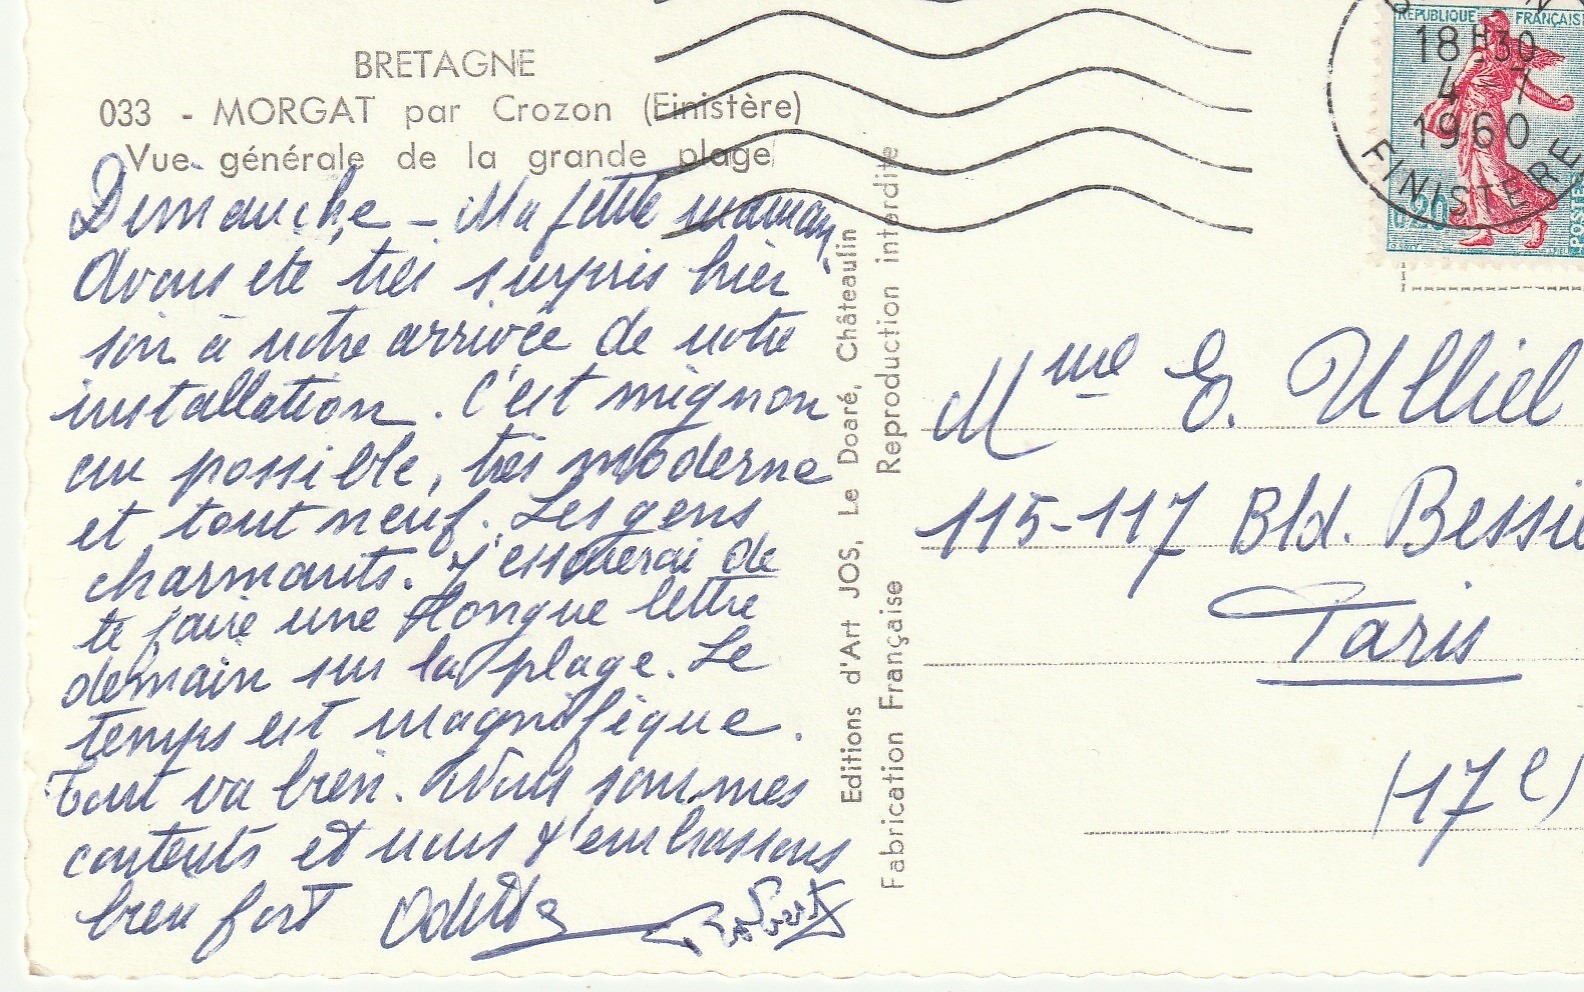 BRETAGNE
033 - MORGAT par Crozon (Finistère)
Vue générale de la grande plage
Dimanche - Ma petite maman,
Avons été très surpris hier
soir à notre arrivée de notre
installation. C'est mignon
au possible, très moderne
et tout neuf. Les gens
charmants. J'essaierai de
te faire une longue lettre
demain sur la plage. Le
temps est magnifique.
Tout va bien. Nous sommes
contents et nous t'embrassons
bien fort Odette Robert
Editions d'Art JOS, Le Doaré, Châteaulin
Fabrication Française Reproduction interdite
RÉPUBLIQUE FRANÇAISE
18H30
4-7
1960
FINISTERE
0,20
POSTES
Mme E. Ulliel
115-117 Bld. Bessiè
Paris
(17e)